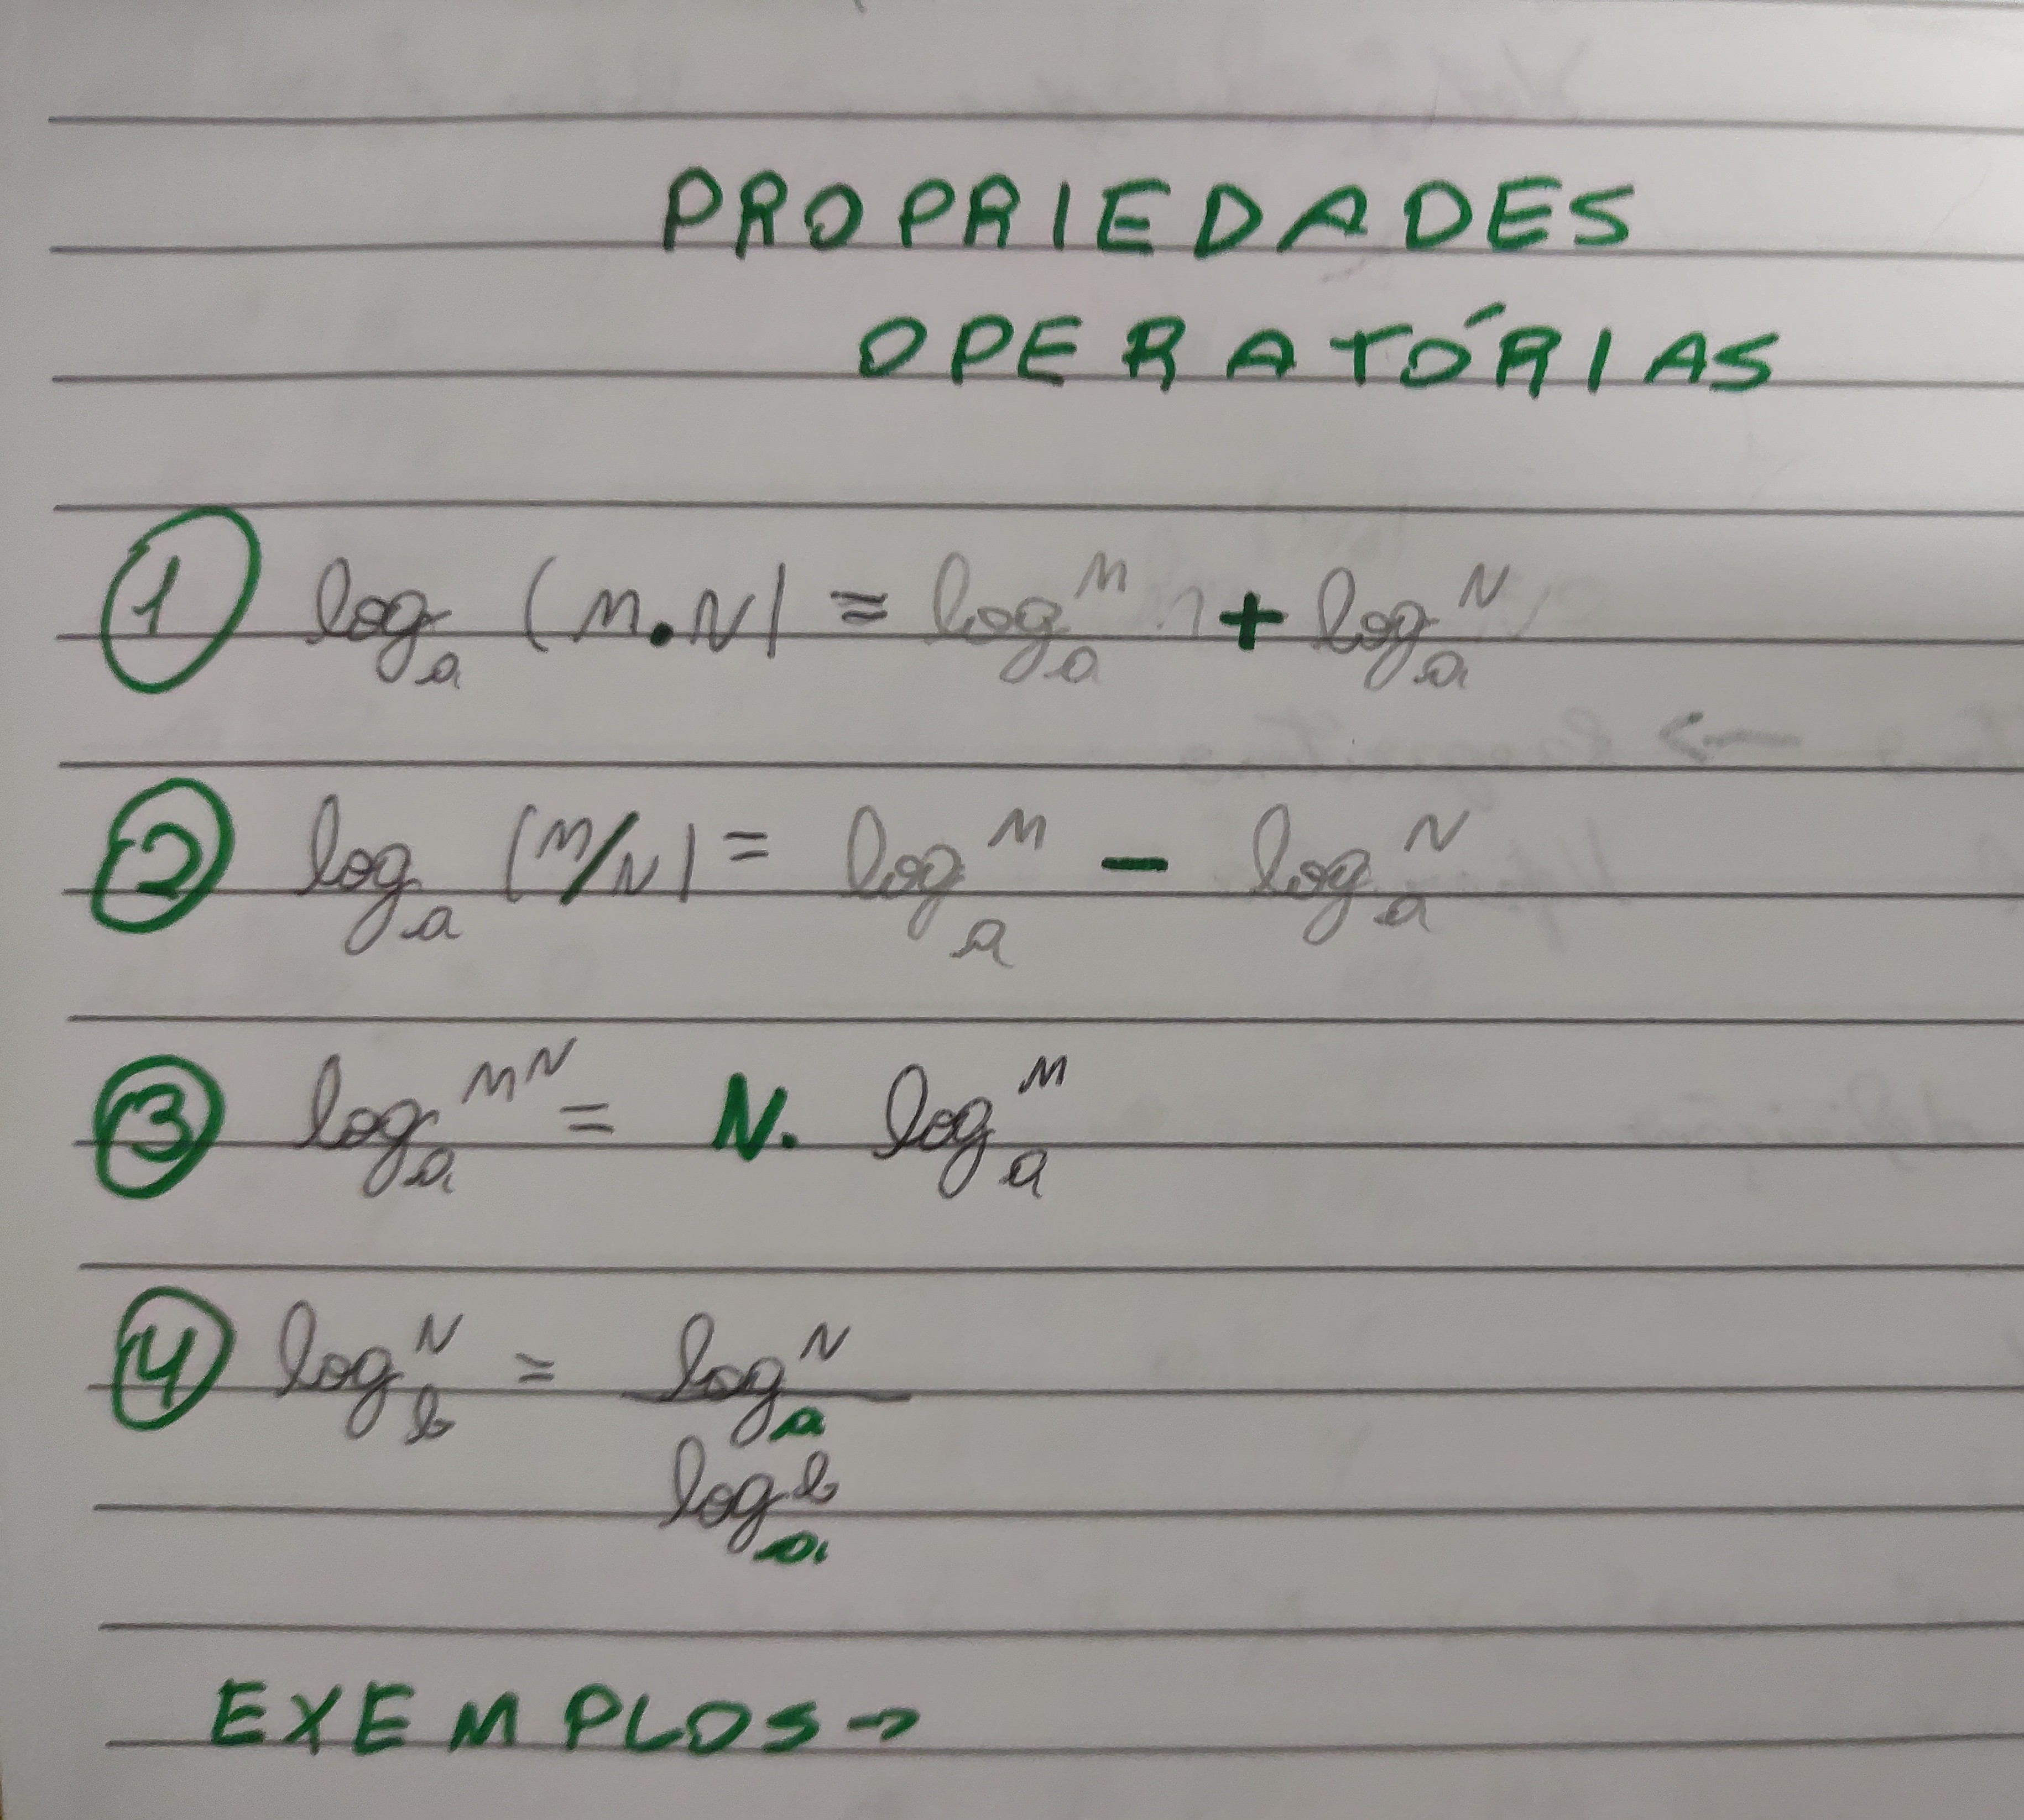 PROPRIEDADES
OPERATÓRIAS
1 logₐ (M.N) = logₐᴹ + logₐᴺ
2 logₐ (M/N) = logₐᴹ - logₐᴺ
3 logₐ M^N = N. logₐᴹ
4 log_b^N = log_a^N
log_a^b
EXEMPLOS →